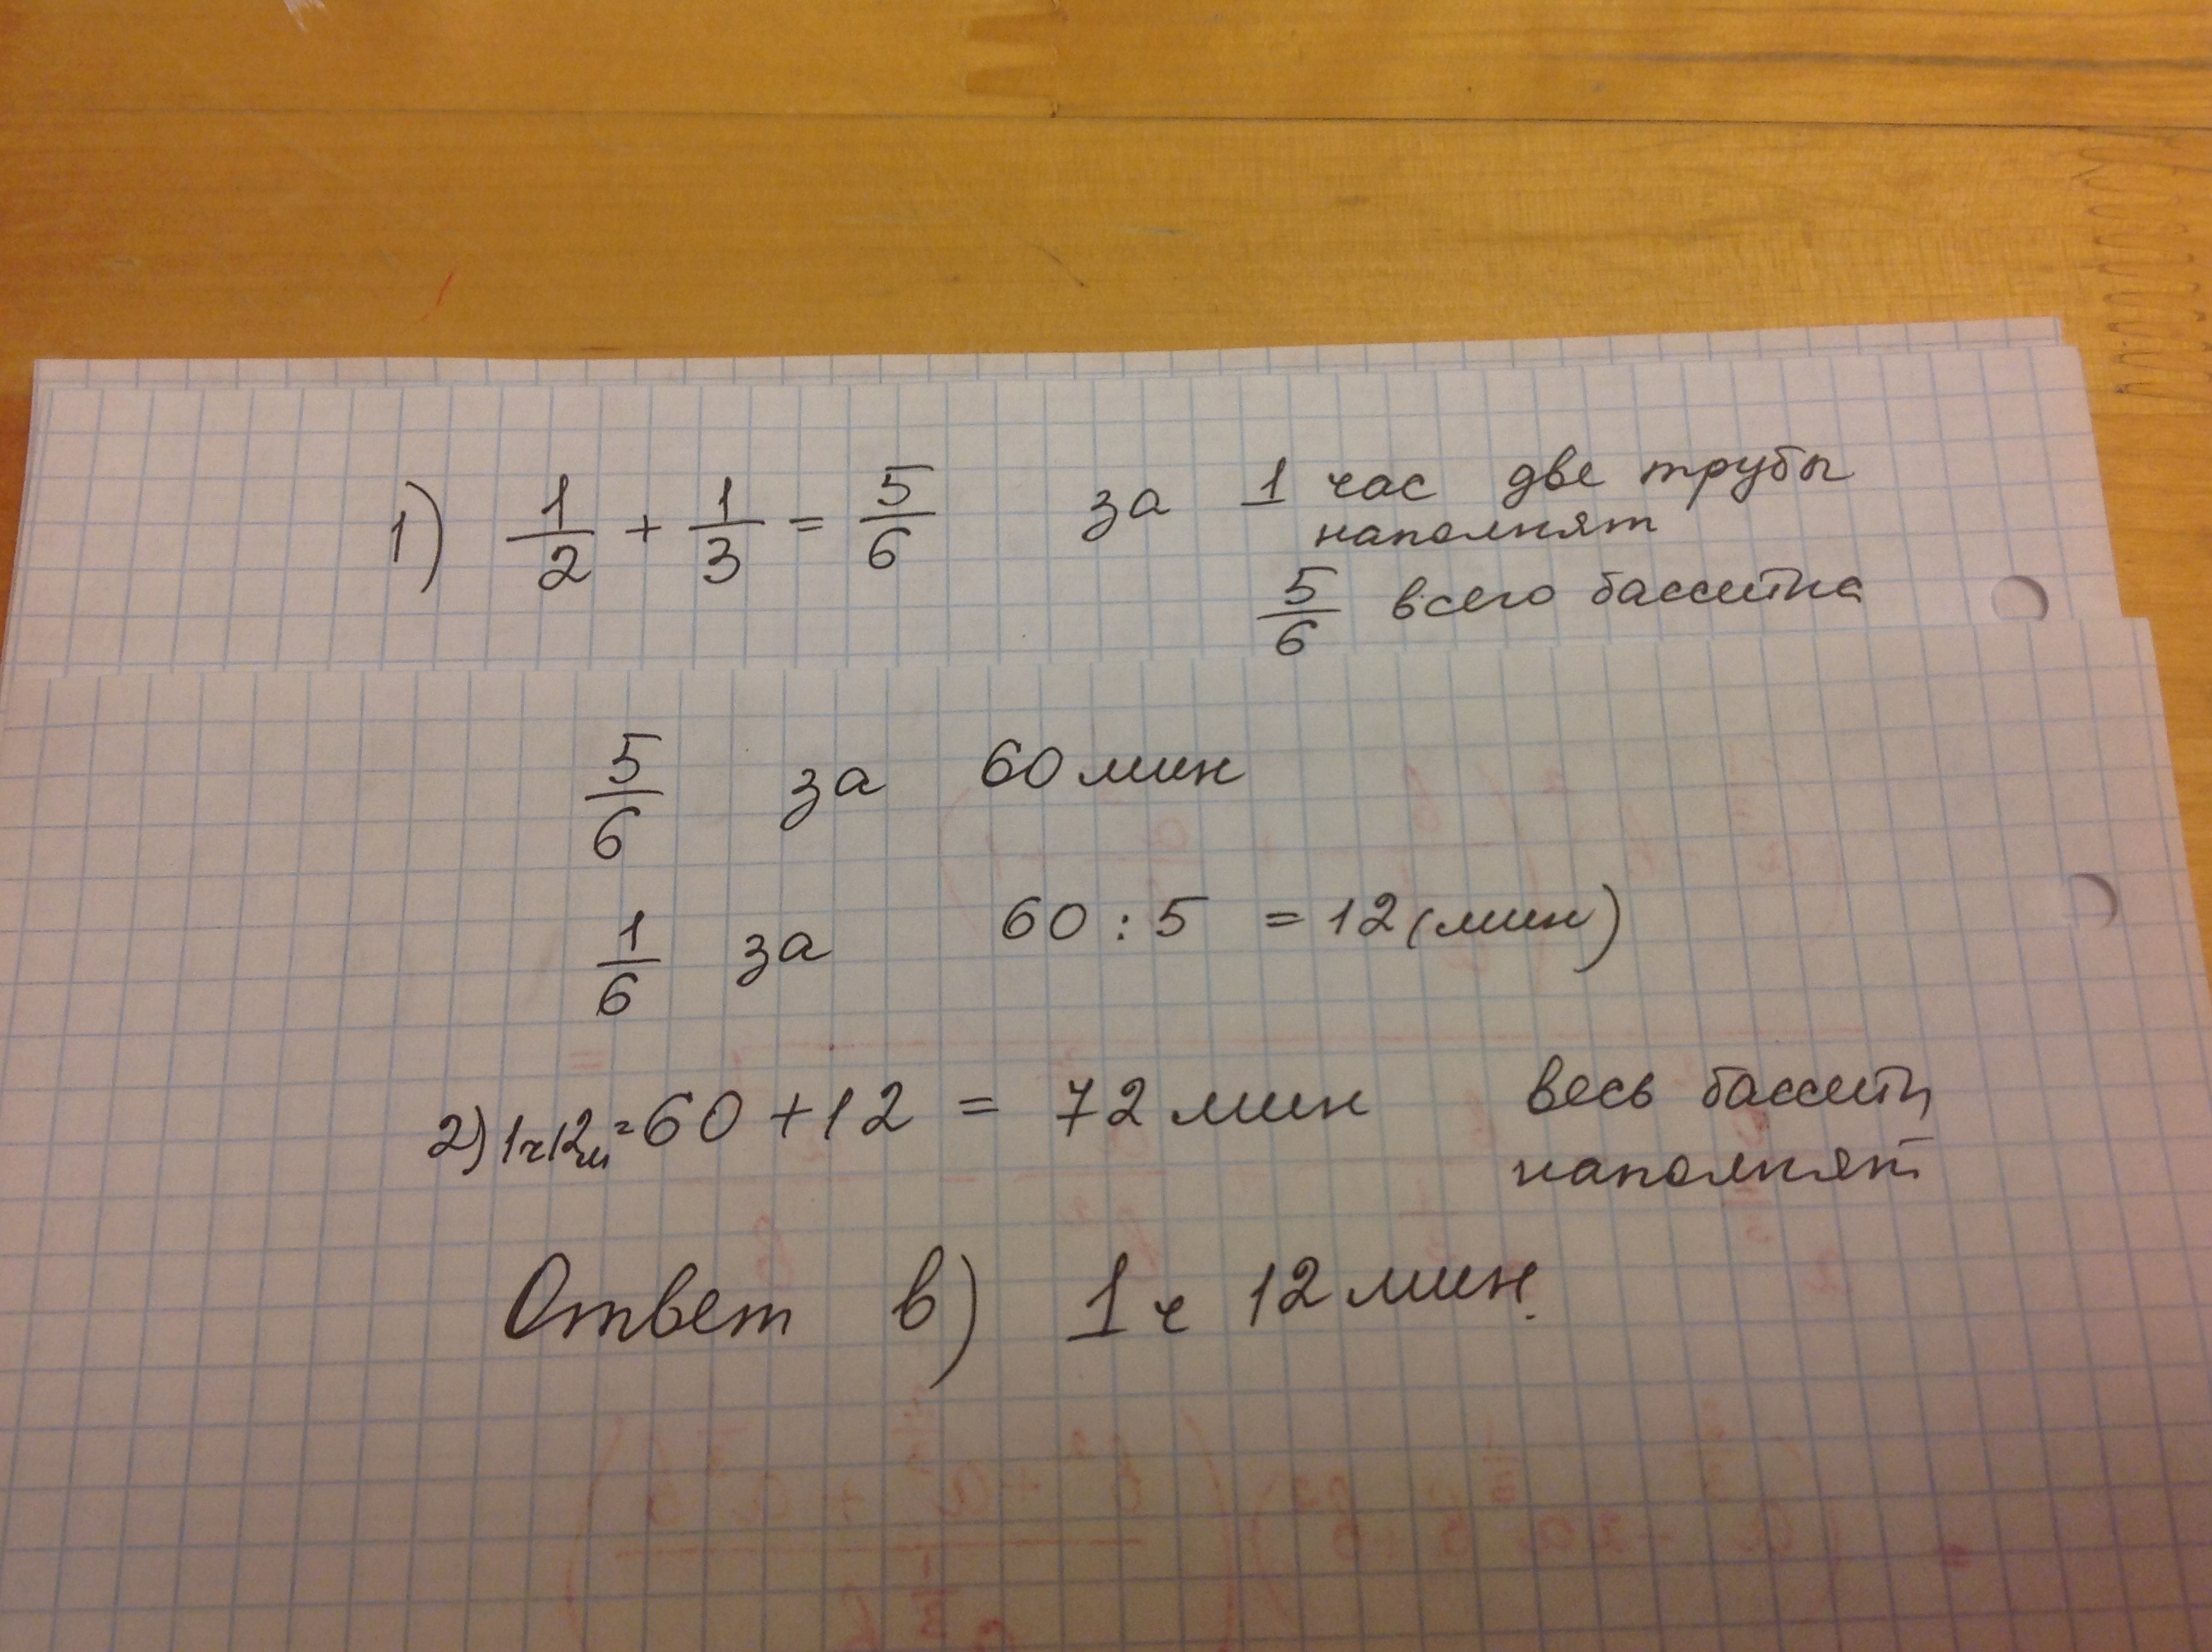 1) 1/2 + 1/3 = 5/6 за 1 час две трубы
наполнят
5/6 всего бассейна
5/6 за 60 мин
1/6 за 60 : 5 = 12 (мин)
2) 1ч12м = 60 + 12 = 72 мин весь бассейн
наполнят
Ответ в) 1 ч 12 мин.